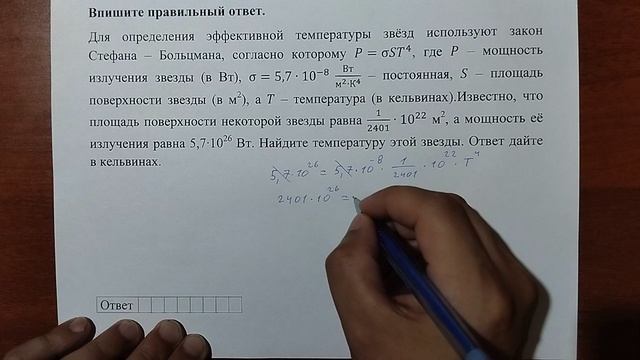 Впишите правильный ответ.
Для определения эффективной температуры звёзд используют закон
Стефана – Больцмана, согласно которому P = σST⁴, где P – мощность
излучения звезды (в Вт), σ = 5,7 · 10⁻⁸ Вт/(м²·К⁴) – постоянная, S – площадь
поверхности звезды (в м²), а T – температура (в кельвинах).Известно, что
площадь поверхности некоторой звезды равна 1/2401 · 10²² м², а мощность её
излучения равна 5,7·10²⁶ Вт. Найдите температуру этой звезды. Ответ дайте
в кельвинах.
5,7·10²⁶ = 5,7·10⁻⁸ · 1/2401 · 10²² · T⁴
2401·10²⁶ =
Ответ